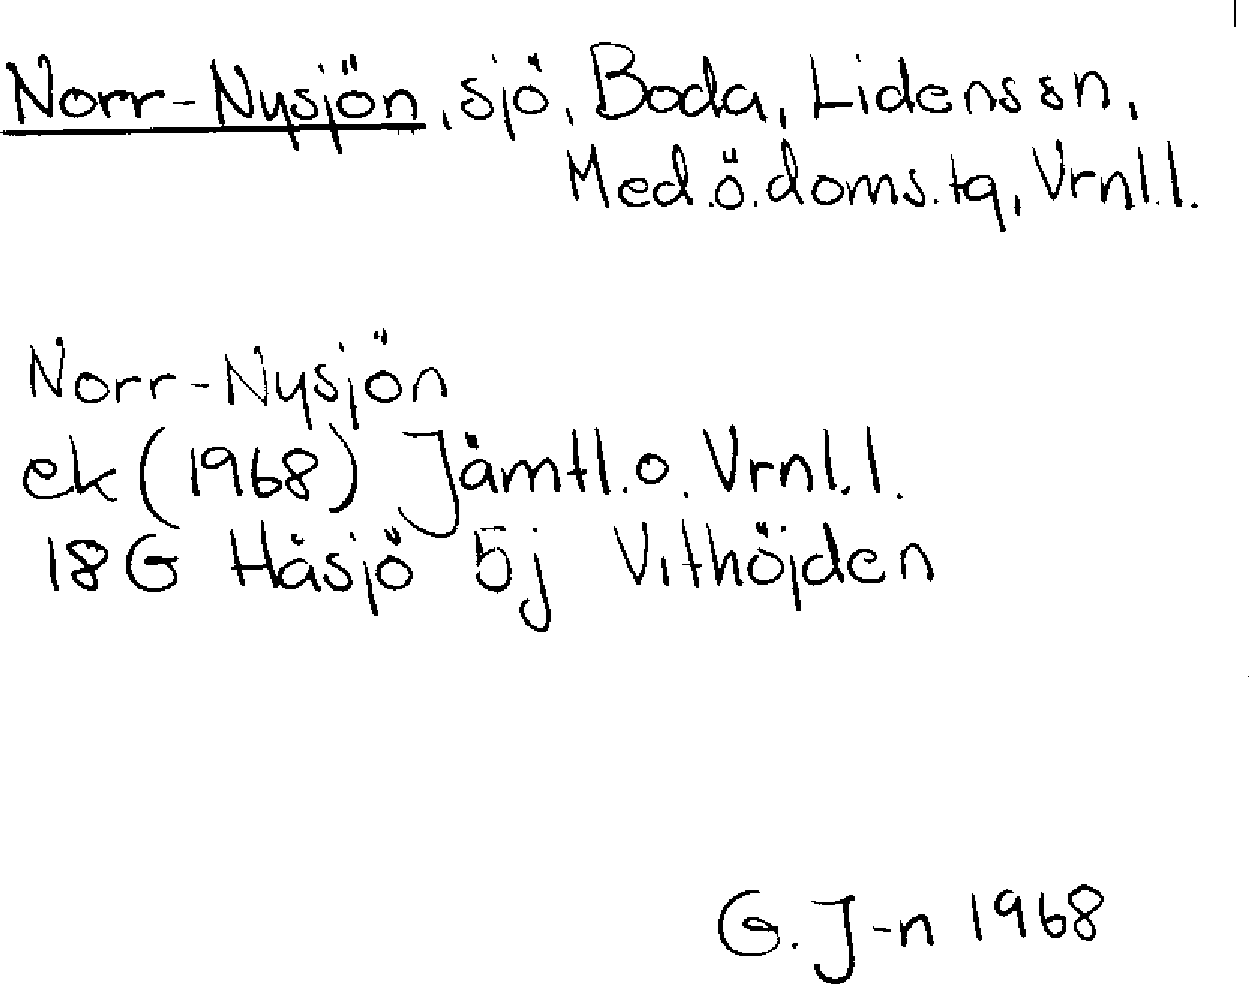 Norr-Nysjön, sjö, Boda, Lidens sn,
Med.ö.doms.tg, Vrnl.l.
Norr-Nysjön
ek (1968) Jämtl.o. Vrnl.l.
18G Håsjö 5j Vithöjden
G. J-n 1968